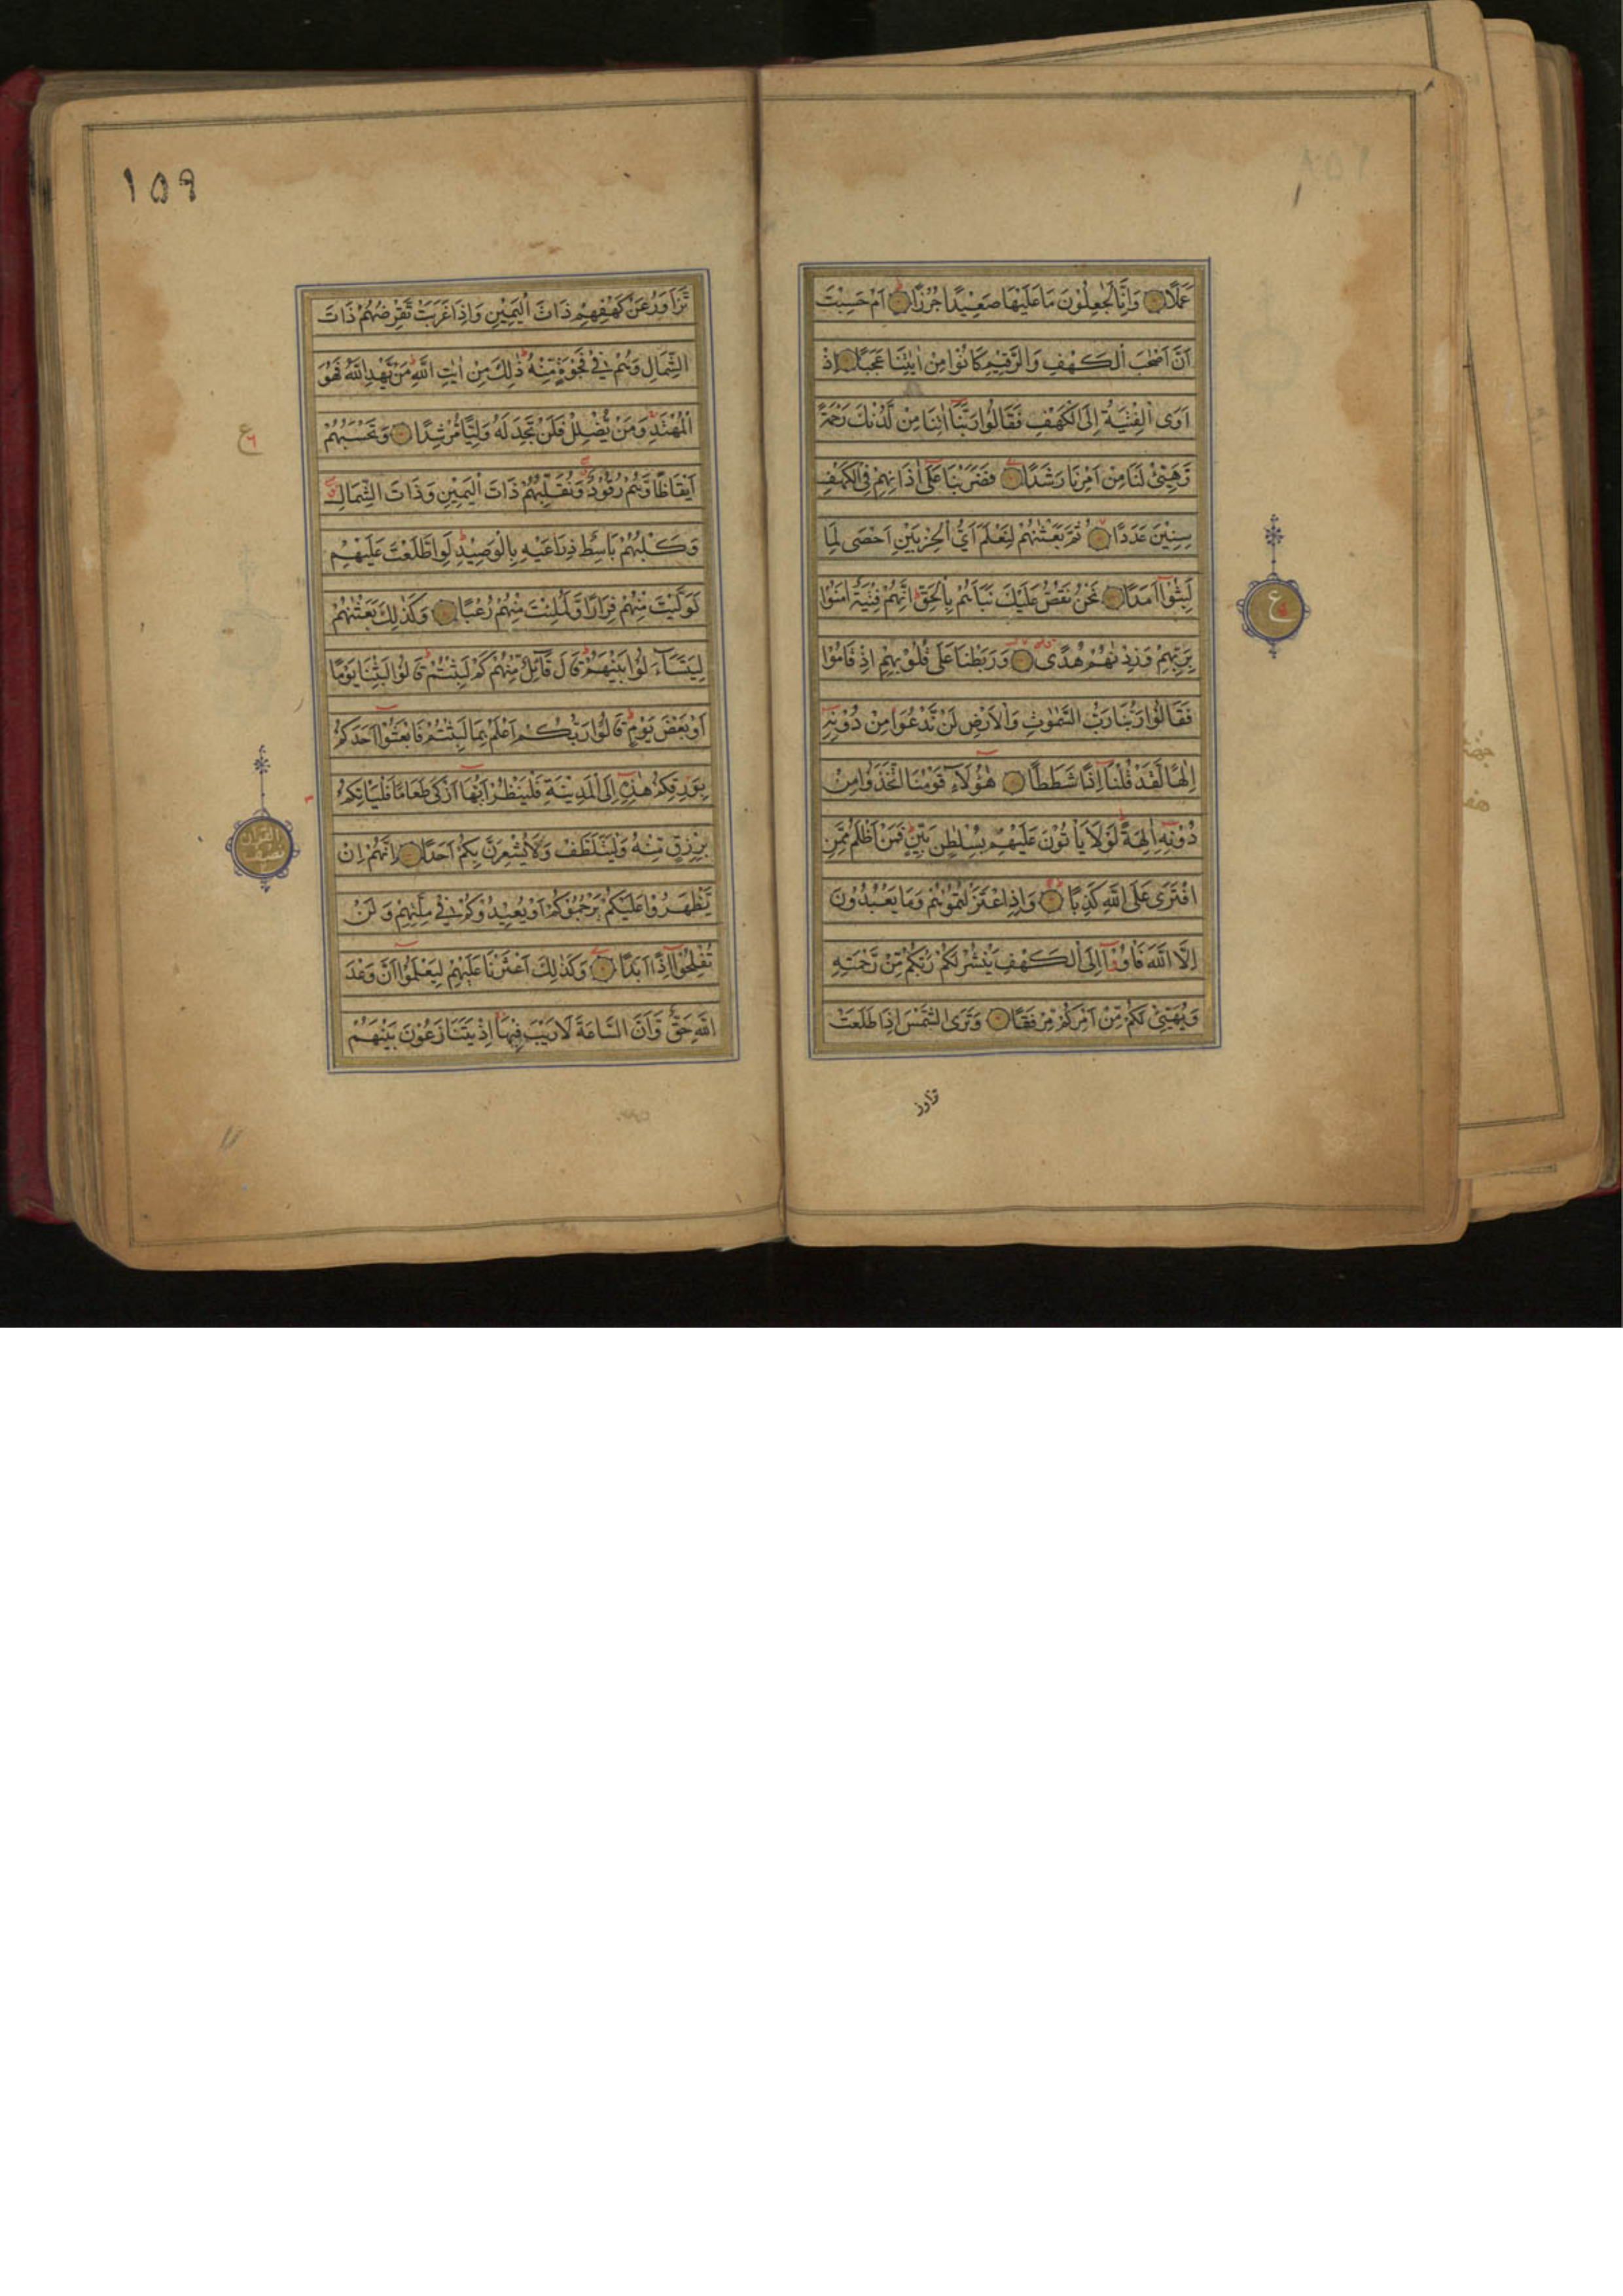 عَمَلًا وَاِنَّا لَجٰعِلُوْنَ مَا عَلَيْهَا صَعِيْدًا جُرُزًا ط اَمْ حَسِبْتَ
اَنَّ اَصْحٰبَ الْكَهْفِ وَالرَّقِيْمِ كَانُوْا مِنْ اٰيٰتِنَا عَجَبًا اِذْ
اَوَى الْفِتْيَةُ اِلَى الْكَهْفِ فَقَالُوْا رَبَّنَا اٰتِنَا مِنْ لَّدُنْكَ رَحْمَةً
وَّهَيِّئْ لَنَا مِنْ اَمْرِنَا رَشَدًا فَضَرَبْنَا عَلٰى اٰذَانِهِمْ فِى الْكَهْفِ
سِنِيْنَ عَدَدًا ثُمَّ بَعَثْنٰهُمْ لِنَعْلَمَ اَيُّ الْحِزْبَيْنِ اَحْصٰى لِمَا
لَبِثُوْا اَمَدًا نَحْنُ نَقُصُّ عَلَيْكَ نَبَاَهُمْ بِالْحَقِّ ط اِنَّهُمْ فِتْيَةٌ اٰمَنُوْا
بِرَبِّهِمْ وَزِدْنٰهُمْ هُدًى وَرَبَطْنَا عَلٰى قُلُوْبِهِمْ اِذْ قَامُوْا
فَقَالُوْا رَبُّنَا رَبُّ السَّمٰوٰتِ وَالْاَرْضِ لَنْ نَّدْعُوَا مِنْ دُوْنِهٖ
اِلٰهًا لَقَدْ قُلْنَا اِذًا شَطَطًا هٰؤُلَاءِ قَوْمُنَا اتَّخَذُوْا مِنْ
دُوْنِهٖ اٰلِهَةً ط لَوْلَا يَاْتُوْنَ عَلَيْهِمْ بِسُلْطٰنٍ بَيِّنٍ ط فَمَنْ اَظْلَمُ مِمَّنِ
افْتَرٰى عَلَى اللّٰهِ كَذِبًا ط وَاِذِ اعْتَزَلْتُمُوْهُمْ وَمَا يَعْبُدُوْنَ
اِلَّا اللّٰهَ فَاْوُوْا اِلَى الْكَهْفِ يَنْشُرْ لَكُمْ رَبُّكُمْ مِّنْ رَّحْمَتِهٖ
وَيُهَيِّئْ لَكُمْ مِّنْ اَمْرِكُمْ مِرْفَقًا وَتَرَى الشَّمْسَ اِذَا طَلَعَتْ
تزاور
ع
١٥٩
تَّزَاوَرُ عَنْ كَهْفِهِمْ ذَاتَ الْيَمِيْنِ وَاِذَا غَرَبَتْ تَّقْرِضُهُمْ ذَاتَ
الشِّمَالِ وَهُمْ فِيْ فَجْوَةٍ مِّنْهُ ط ذٰلِكَ مِنْ اٰيٰتِ اللّٰهِ ط مَنْ يَّهْدِ اللّٰهُ فَهُوَ
الْمُهْتَدِ وَمَنْ يُّضْلِلْ فَلَنْ تَجِدَ لَهُ وَلِيًّا مُّرْشِدًا وَتَحْسَبُهُمْ
اَيْقَاظًا وَّهُمْ رُقُوْدٌ وَّنُقَلِّبُهُمْ ذَاتَ الْيَمِيْنِ وَذَاتَ الشِّمَالِ
وَكَلْبُهُمْ بَاسِطٌ ذِرَاعَيْهِ بِالْوَصِيْدِ ط لَوِ اطَّلَعْتَ عَلَيْهِمْ
لَوَلَّيْتَ مِنْهُمْ فِرَارًا وَّلَمُلِئْتَ مِنْهُمْ رُعْبًا وَكَذٰلِكَ بَعَثْنٰهُمْ
لِيَتَسَاءَلُوْا بَيْنَهُمْ ط قَالَ قَائِلٌ مِّنْهُمْ كَمْ لَبِثْتُمْ ط قَالُوْا لَبِثْنَا يَوْمًا
اَوْ بَعْضَ يَوْمٍ ط قَالُوْا رَبُّكُمْ اَعْلَمُ بِمَا لَبِثْتُمْ فَابْعَثُوْا اَحَدَكُمْ
بِوَرِقِكُمْ هٰذِهٖ اِلَى الْمَدِيْنَةِ فَلْيَنْظُرْ اَيُّهَا اَزْكٰى طَعَامًا فَلْيَاْتِكُمْ
بِرِزْقٍ مِّنْهُ وَلْيَتَلَطَّفْ وَلَا يُشْعِرَنَّ بِكُمْ اَحَدًا اِنَّهُمْ اِنْ
يَّظْهَرُوْا عَلَيْكُمْ يَرْجُمُوْكُمْ اَوْ يُعِيْدُوْكُمْ فِيْ مِلَّتِهِمْ وَلَنْ
تُفْلِحُوْا اِذًا اَبَدًا وَكَذٰلِكَ اَعْثَرْنَا عَلَيْهِمْ لِيَعْلَمُوْا اَنَّ وَعْدَ
اللّٰهِ حَقٌّ وَّاَنَّ السَّاعَةَ لَا رَيْبَ فِيْهَا اِذْ يَتَنَازَعُوْنَ بَيْنَهُمْ
ع
القران
نصف